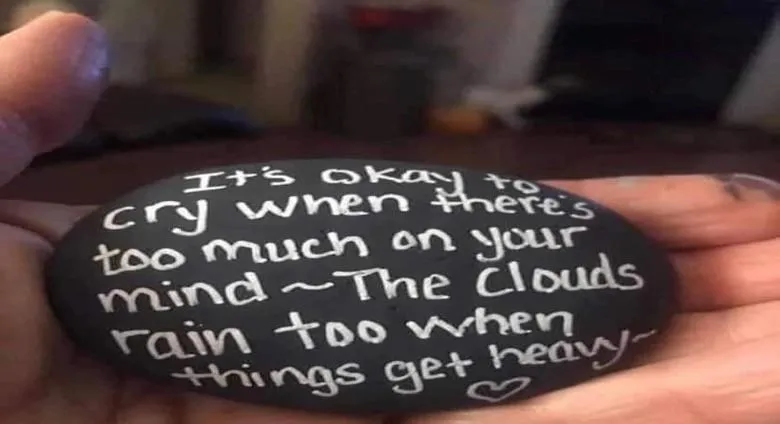 It's okay to
cry when there's
too much on your
mind ~ The Clouds
rain too when
things get heavy~
♡